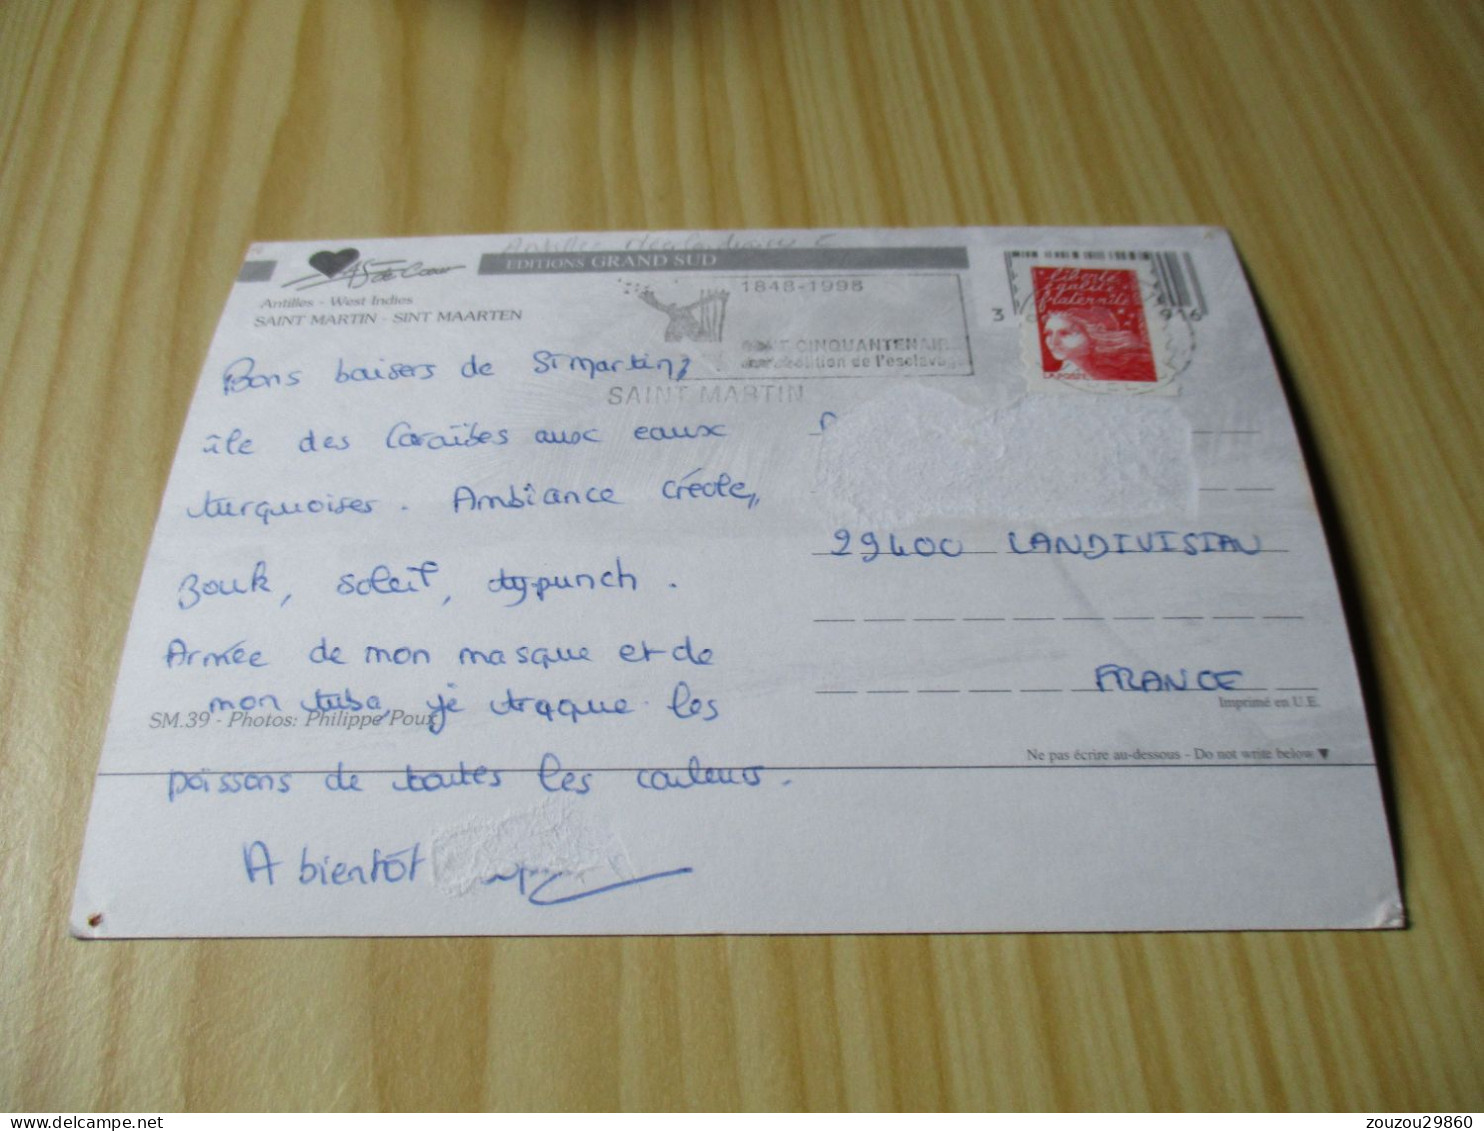 Antilles
EDITIONS GRAND SUD
de Cœur
Antilles - West Indies
SAINT MARTIN - SINT MAARTEN
1848-1998
CINQUANTENAIRE
abolition de l'esclavage
SAINT MARTIN
liberté
égalité
fraternité
LA POSTE
3
916
Bons baisers de St Martin,
île des Caraïbes aux eaux
turquoises. Ambiance créole,
zouk, soleil, ty punch.
Armée de mon masque et de
mon tuba, je traque les
poissons de toutes les couleurs.
A bientôt
29400 LANDIVISIAU
FRANCE
SM.39 - Photos: Philippe Poux
Imprimé en U.E.
Ne pas écrire au-dessous - Do not write below ▼
zouzou29860